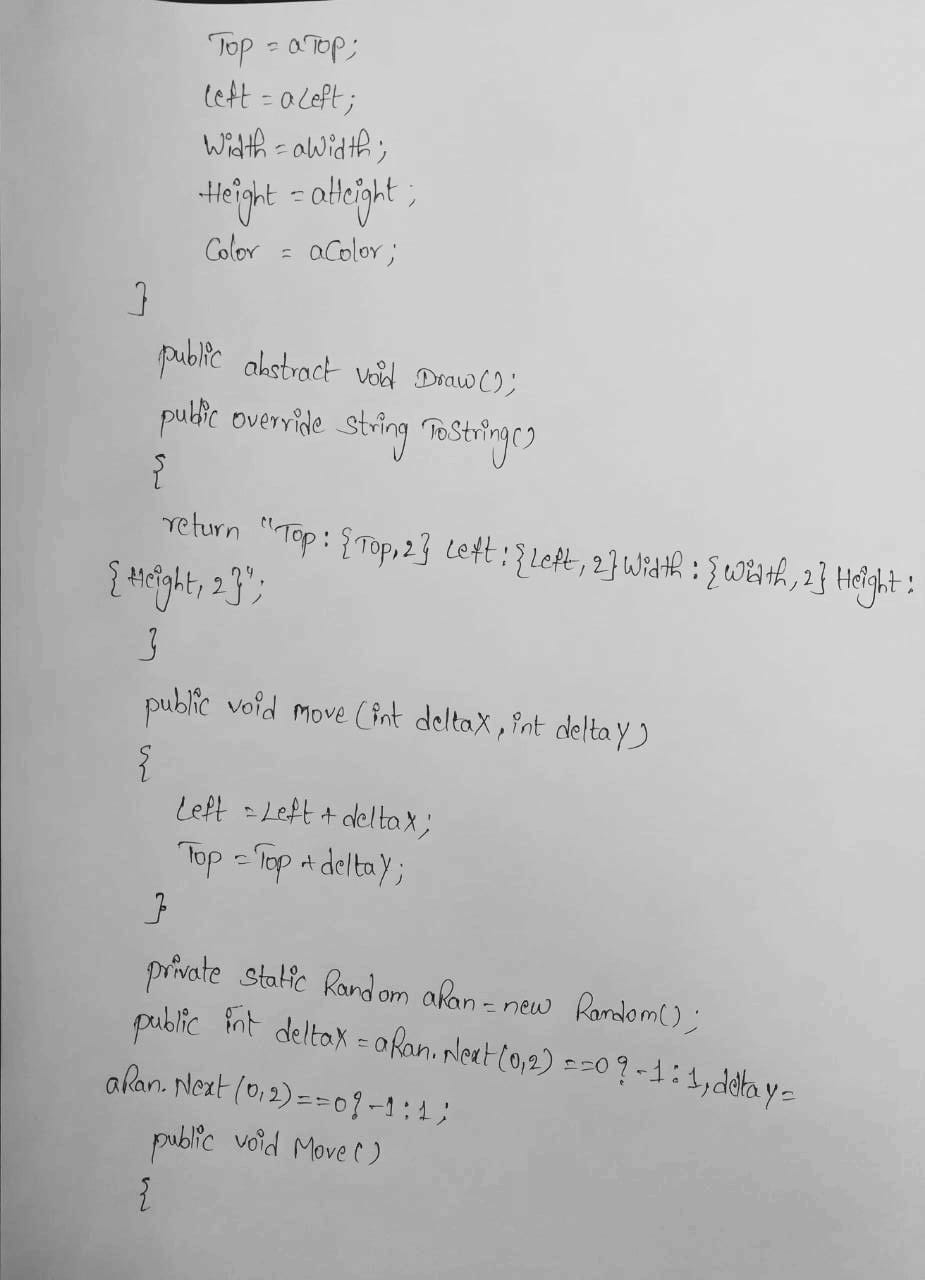 Top = aTop;
Left = aLeft;
Width = aWidth;
Height = aHeight;
Color = aColor;
}
public abstract void Draw();
public override string ToString()
{
return "Top: {Top,2} Left: {Left, 2} Width: {Width, 2} Height:
{Height, 2}";
}
public void move (int deltaX, int deltaY)
{
Left = Left + deltaX;
Top = Top + deltaY;
}
private static Random aRan = new Random();
public int deltaX = aRan.Next(0,2) ==0 ? -1 : 1, deltaY =
aRan.Next(0,2)==0? -1 : 1;
public void Move()
{